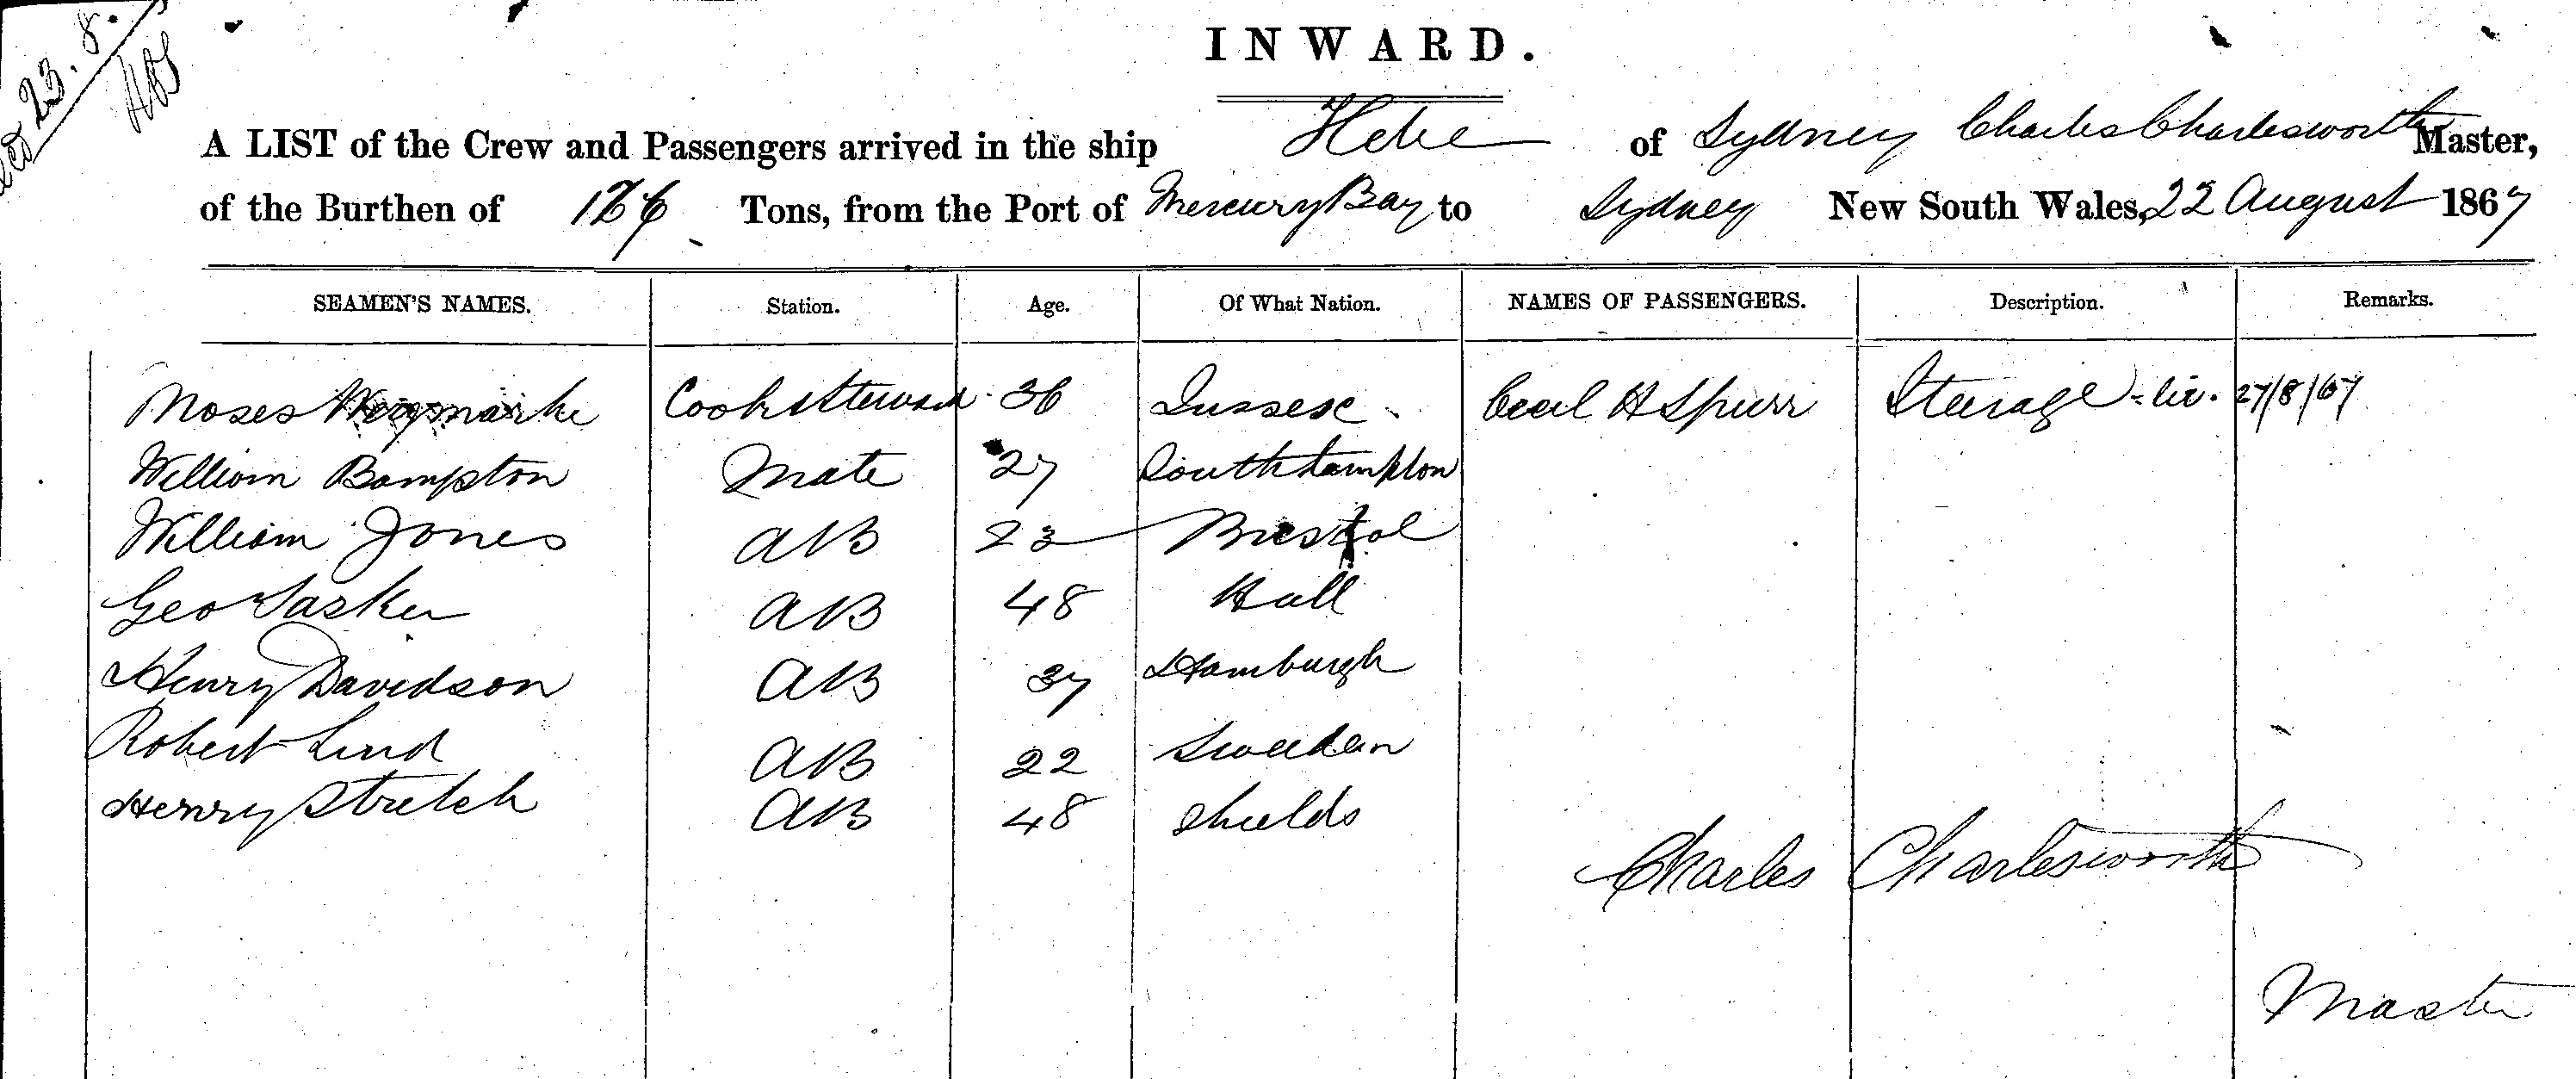 23.8.
INWARD.
A LIST of the Crew and Passengers arrived in the ship Hebe of Sydney Charles Charlesworth Master,
of the Burthen of Tons, from the Port of Mercury Bay to Sydney New South Wales, 22 August 1867
SEAMEN'S NAMES. Station. Age. Of What Nation. NAMES OF PASSENGERS. Description. Remarks.
Moses Cook & Steward 36 Sussex Cecil H Spurr Steerage 27/8/67
William Bampton Mate 27 Southhampton
William Jones AB 23 Bristol
Geo Tasker AB 48 Hull
Henry Davidson AB 37 Hamburgh
Robert Lind AB 22 Sweeden
Henry Stretch AB 48 Shields
Charles Charlesworth
Master